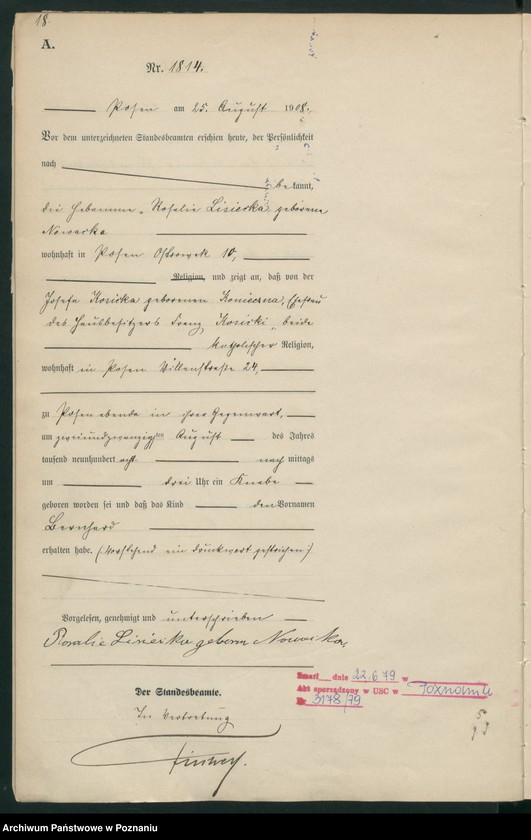 18
A.
Nr. 1814.
Posen am 25. August 1908.
Vor dem unterzeichneten Standesbeamten erschien heute, der Persönlichkeit
nach
bekannt,
die Hebamme, Rosalie Lisiecka, geborene
Nowacka
wohnhaft in Posen Ostrowek 10,
Religion, und zeigt an, daß von der
Josefa Kosicka geborenen Konieczna, Ehefrau
des Hausbesitzers Franz Kosicki, beide
katholischer Religion,
wohnhaft in Posen 24,
zu Posen ebenda in ihrer Gegenwart,
am zweiundzwanzigsten August des Jahres
tausend neunhundert acht nachmittags
um drei Uhr ein Knabe
geboren worden sei und daß das Kind den Vornamen
Bernhard
erhalten habe. (Vorstehend ein Druckwort gestrichen)
Vorgelesen, genehmigt und unterschrieben
Rosalie Lisiecka geborn Nowacka,
Der Standesbeamte.
In Vertretung
Zmarł dnia 22.6 79 w
Akt sporządzony w USC w Poznaniu
Nr 3178/79
Archiwum Państwowe w Poznaniu